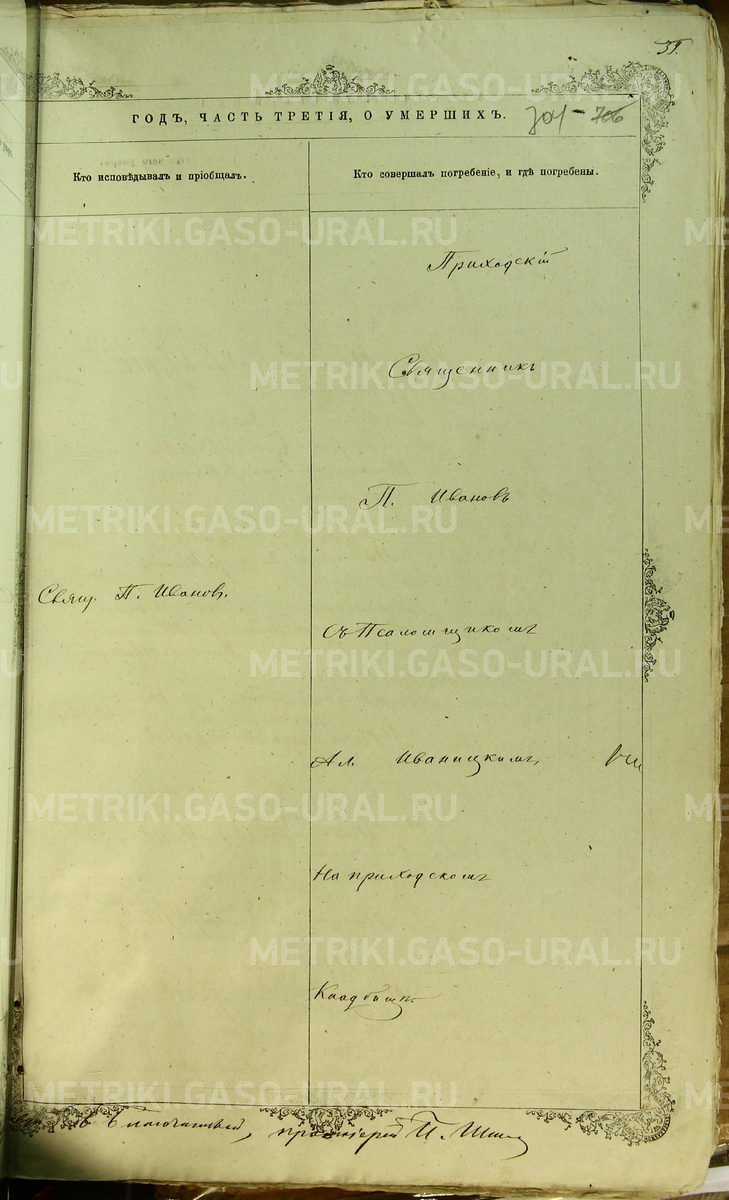 ГОДЪ, ЧАСТЬ ТРЕТІЯ, О УМЕРШИХЪ.
701-706
Кто исповѣдывалъ и пріобщалъ.
Кто совершалъ погребеніе, и гдѣ погребены.
METRIKI.GASO-URAL.RU
Приходскій
Священникъ
П. Ивановъ
Свящ. П. Иванов.
съ Псаломщикомъ
Ал. Иваницкимъ,
На приходскомъ
Кладбищѣ.
протоіерей И.